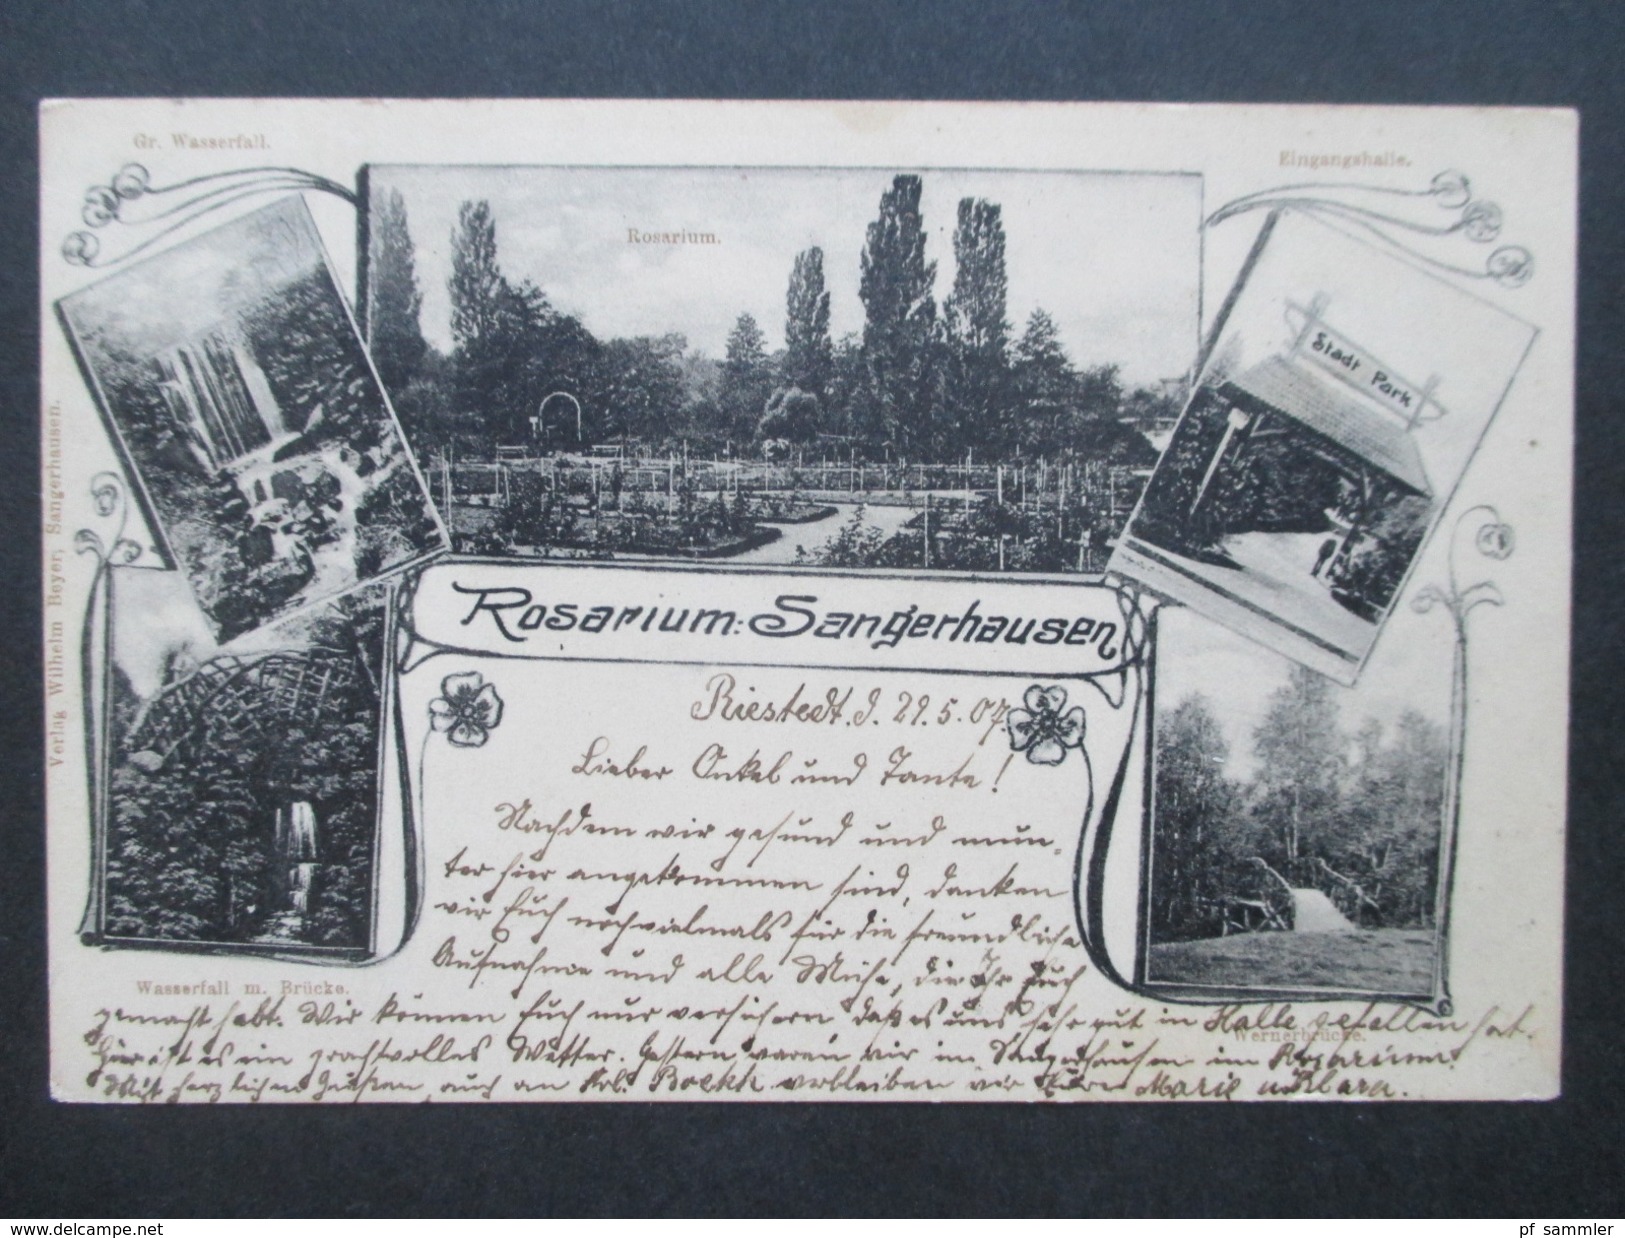 Gr. Wasserfall.
Eingangshalle.
Rosarium.
Stadt Park
Verlag Wilhelm Beyer, Sangerhausen.
Rosarium: Sangerhausen
Riestedt. d. 29. 5. 07.
Lieber Onkel und Tante!
Nachdem wir gesund und mun-
ter hier angekommen sind, danken
wir Euch nochvielmals für die freundliche
Aufnahme und alle Mühe, die Ihr Euch
Wasserfall m. Brücke.
gemacht habt. Wir können Euch nur versichern, daß es uns sehr gut in Halle gefallen hat.
Wernerbrücke.
Hier ist es ein prachtvolles Wetter. Gestern waren wir in Sangerhausen im Rosarium.
Mit herzlichen Grüßen, auch an Frl. Boekh verbleiben wir Eure Marie u. Klara.
www.delcampe.net
pf_sammler